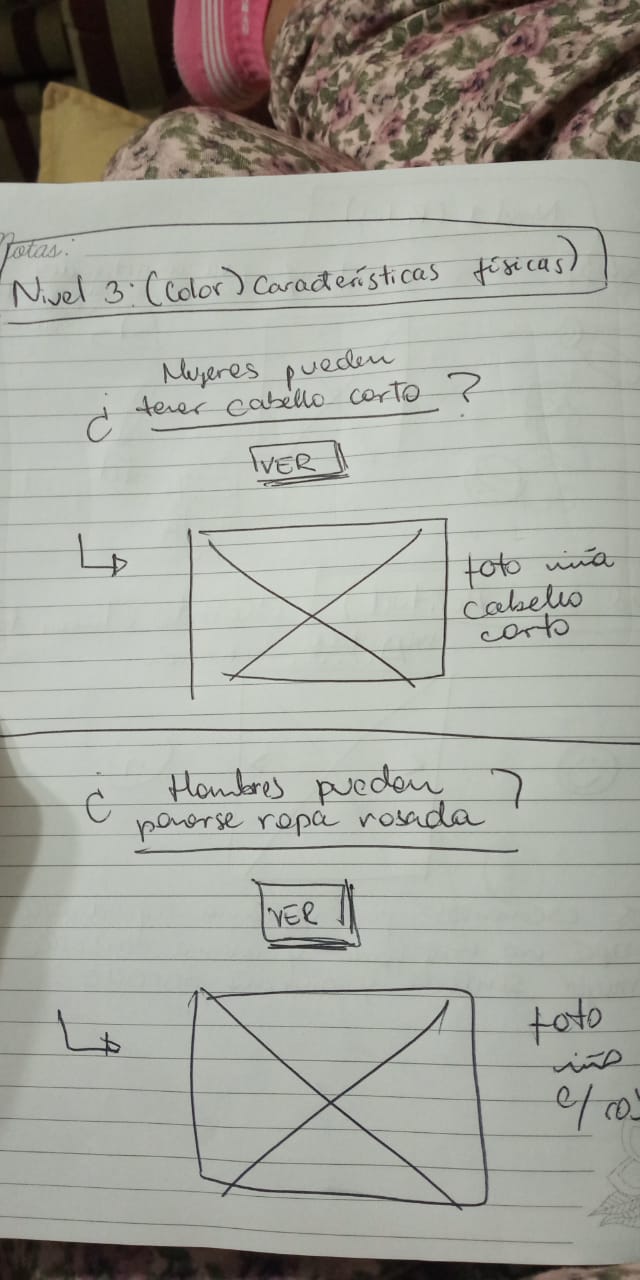 Notas:
Nivel 3: (Color) Características físicas)
Mujeres pueden
¿ tener cabello corto ?
VER
foto niña
cabello
corto
¿ Hombres pueden ?
ponerse ropa rosada
VER
foto
niño
c/